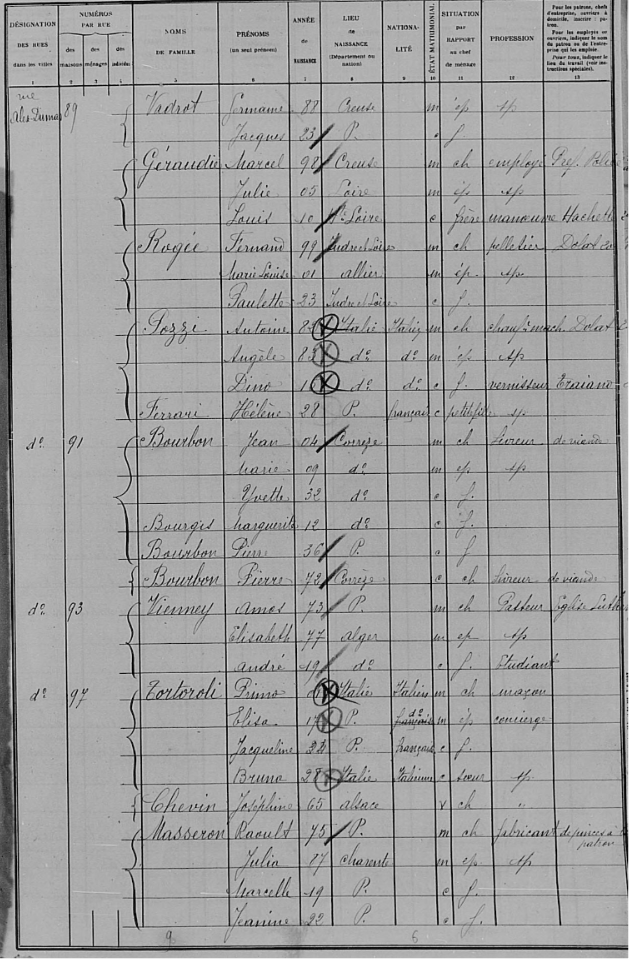 DÉSIGNATION DES RUES dans les villes | NUMÉROS PAR RUE des maisons | des ménages | des individus | NOMS DE FAMILLE | PRÉNOMS (un seul prénom) | ANNÉE de NAISSANCE | LIEU de NAISSANCE (Département ou nation) | NATIONALITÉ | ÉTAT MATRIMONIAL | SITUATION par RAPPORT au chef de ménage | PROFESSION | Pour les patrons, chefs d'entreprise, ouvriers à domicile, inscrire : patron. Pour les employés ou ouvriers, indiquer le nom du patron ou de l'entreprise qui les emploie. Pour tous, indiquer le lieu du travail (voir instructions spéciales).
1 2 3 4 5 6 7 8 9 10 11 12 13
rue
Alex Dumas 89 Vadrot Germaine 88 Creuse m ép sp
Jacques 23 P. c f.
Géraudie Marcel 98 Creuse m ch employé Préf. Police
Julie 05 Loire m ép sp
Louis 10 Hte Loire c frère manœuvre Hachette
Rogée Fernand 99 Indre et Loire m ch pelletier
Marie Louise 01 allier m ép. sp
Paulette 23 Indre et Loire c f.
Pozzi Antoine Italie m ch
Angèle 83 do do m ép sp
Dino do do c f. vernisseur
Ferrari Hélène 28 P. française c petite fille sp
do 91 Bourbon Jean 04 Corrèze m ch livreur de viande
Marie 09 do m ep sp
Yvette 32 do c f.
Bourgis Marguerite 12 do c f.
Bourbon Pierre 36 P. c f
Bourbon Pierre 72 Corrèze c ch livreur de viande
do 93 Vienney Amos 73 P. m ch Pasteur Eglise
Elisabeth 77 Alger m ep sp
André 19 do c f. Etudiant
do 97 Tortoroli Primo Italie Italien m ch maçon
Elisa P. do française m ép concierge
Jacqueline P. française c f.
Bruna 28 Italie Italienne c sœur sp
Chevin Joséphine 65 alsace v ch "
Masseron Raoult 75 P. m ch fabricant de pinces à patron
Julia 87 charente m ep sp
Marcelle 19 P. c f.
Jeanine 22 P. c f.